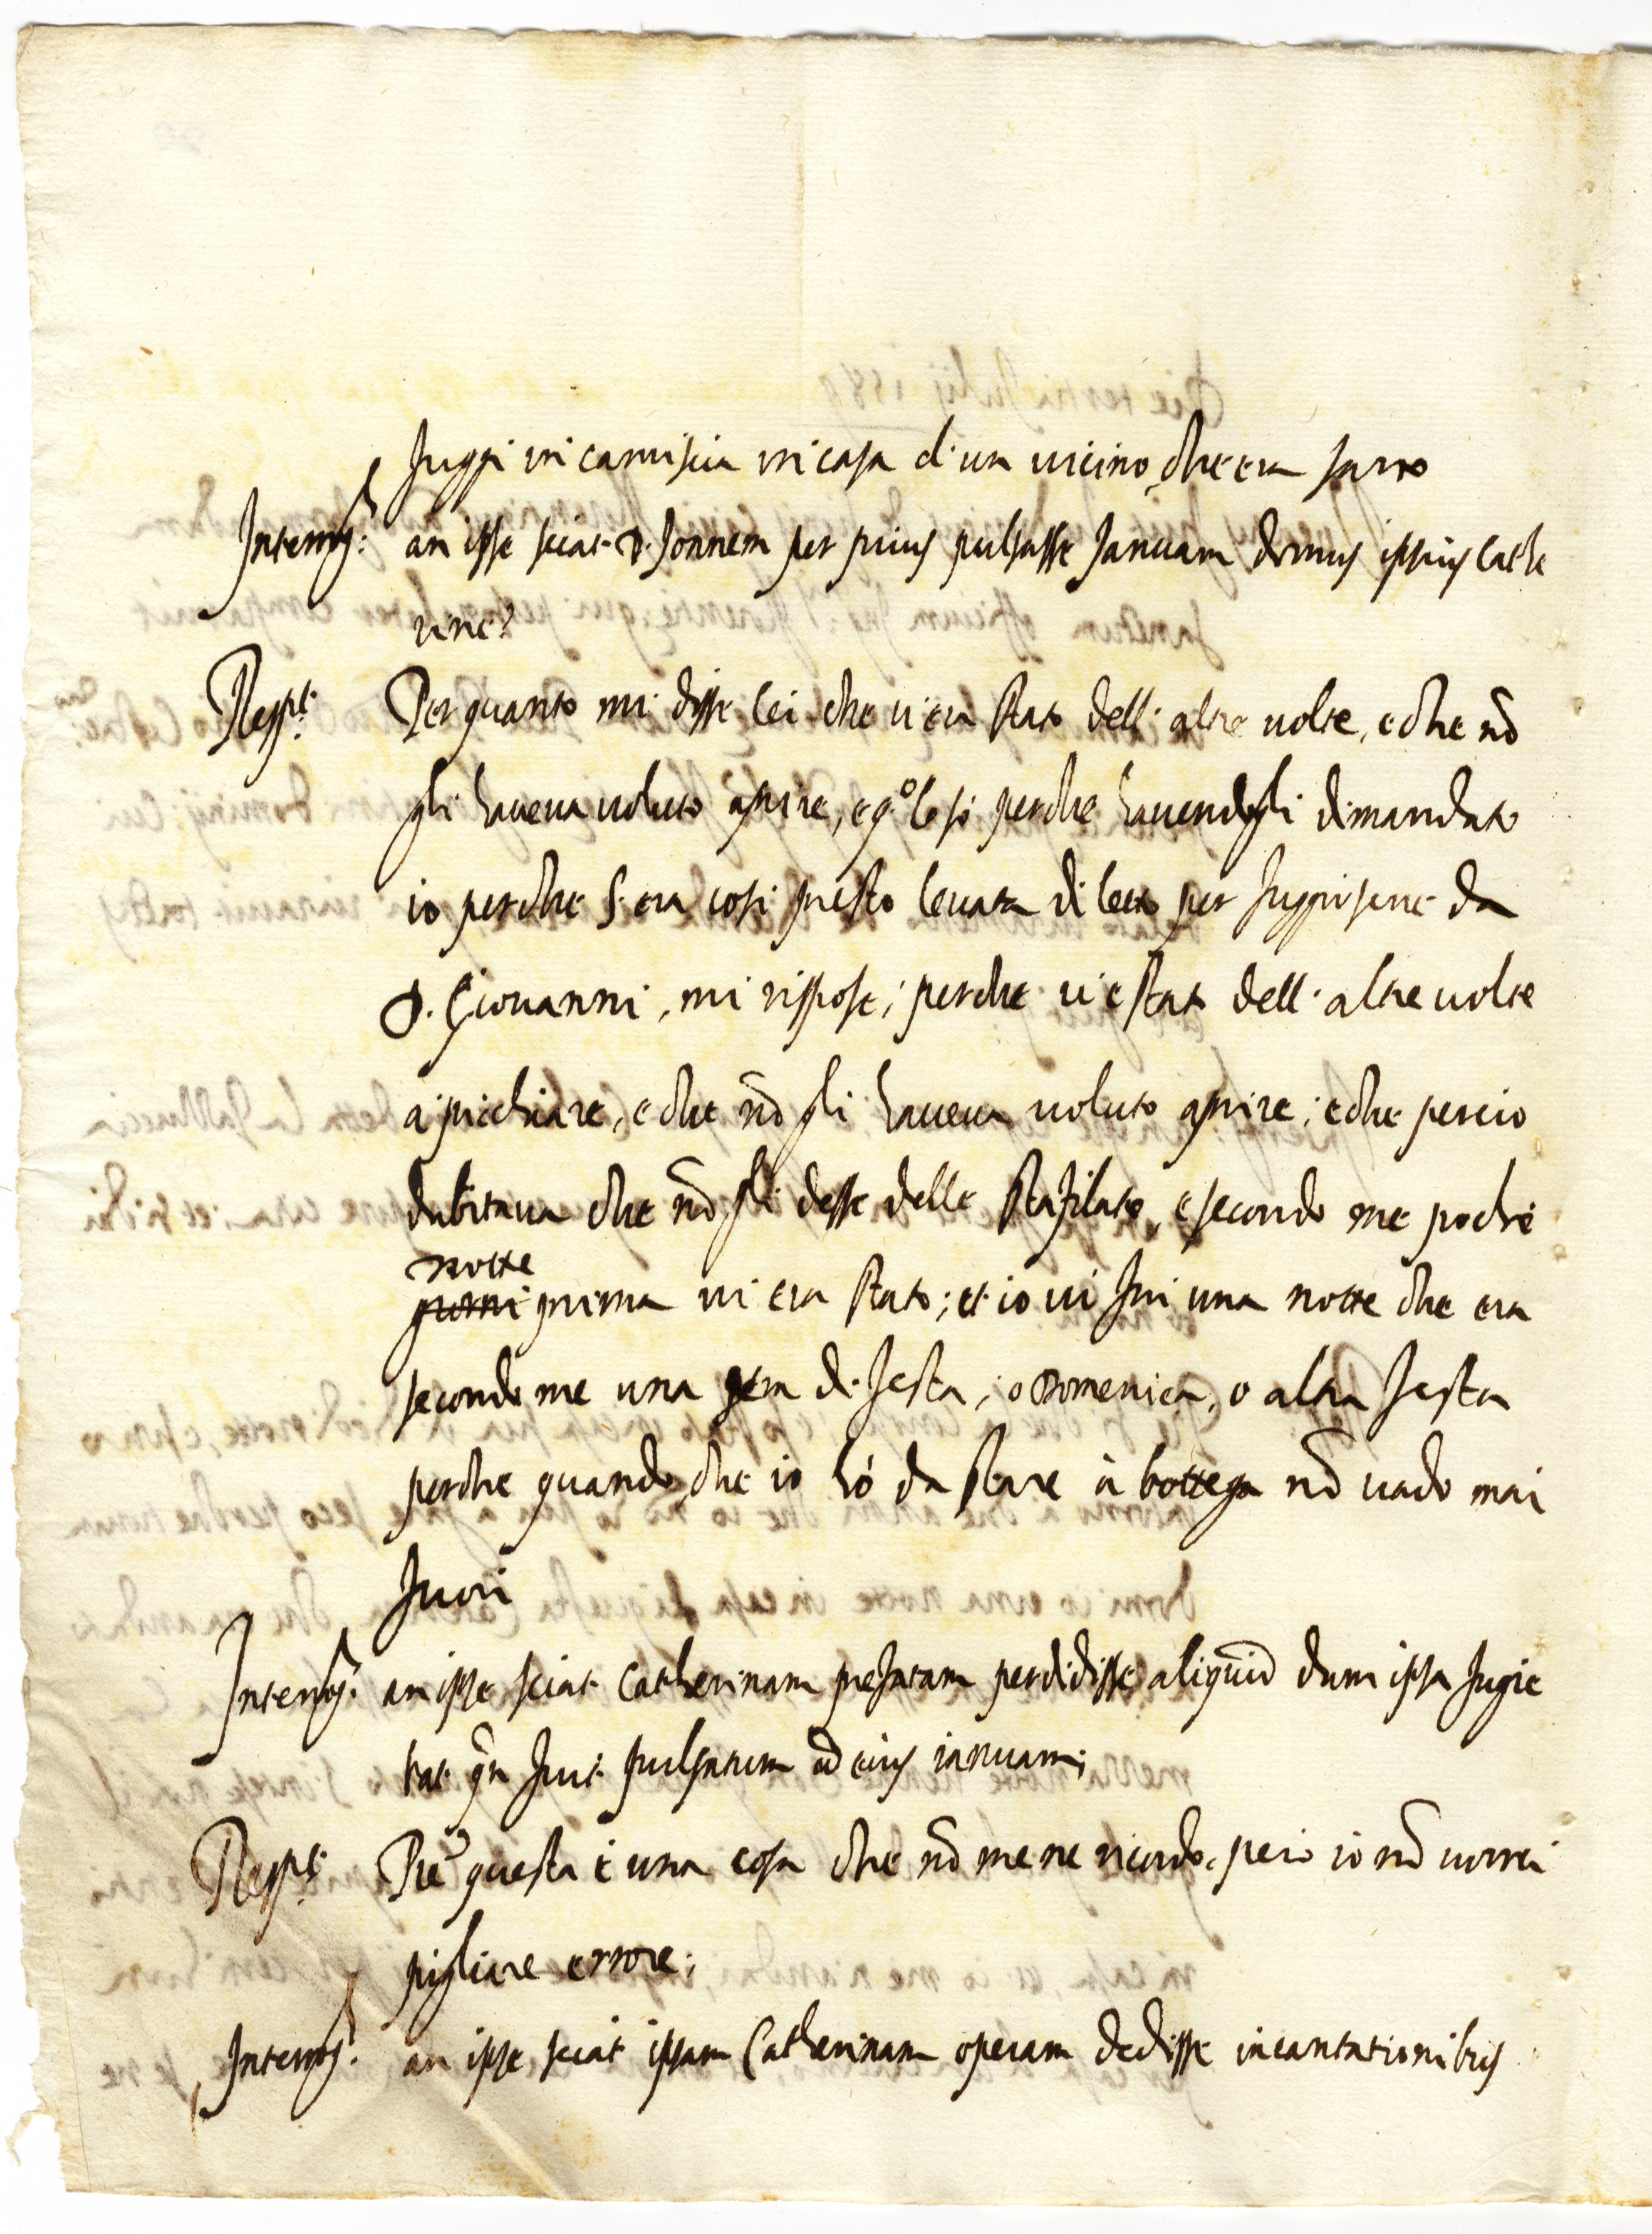 fuggì in camiscia in casa d'un vicino, che era sarto
Interrog. an ipse sciat D. Joannem per prius pulsasse Januam domus ipsius Cathe
rine?
Respt. Per quanto mi disse lei che vi era stato dell'altre volte, e che nō
gli haveva voluto aprire, e q.o lo so perche havendogli dimandato
io perche s'era cosi presto levata di letto per fuggirsene da
D. Giovanni, mi rispose; perche vi è stato dell'altre volte
a picchiare, e che nō gli haveva voluto aprire; e che percio
dubitava che nō gli desse delle stafilate, e secondo me poche
notte
giorni prima vi era stato; et io vi fui una notte che era
secondo me una sera di festa, o Domenica, o altra festa
perche quando che io hó da stare à bottega nō vado mai
fuori
Interrog. an ipse sciat Catherinam prefatam perdidisse aliquid dum ipsa fugie
bat qn fuit pulsatum ad eius ianuam;
Respt. Pre questa è una cosa che nō me ne ricordo, però io nō vorrei
pigliare errore;
Interrog. an ipse sciat ipsam Catherinam operam dedisse incantationibus